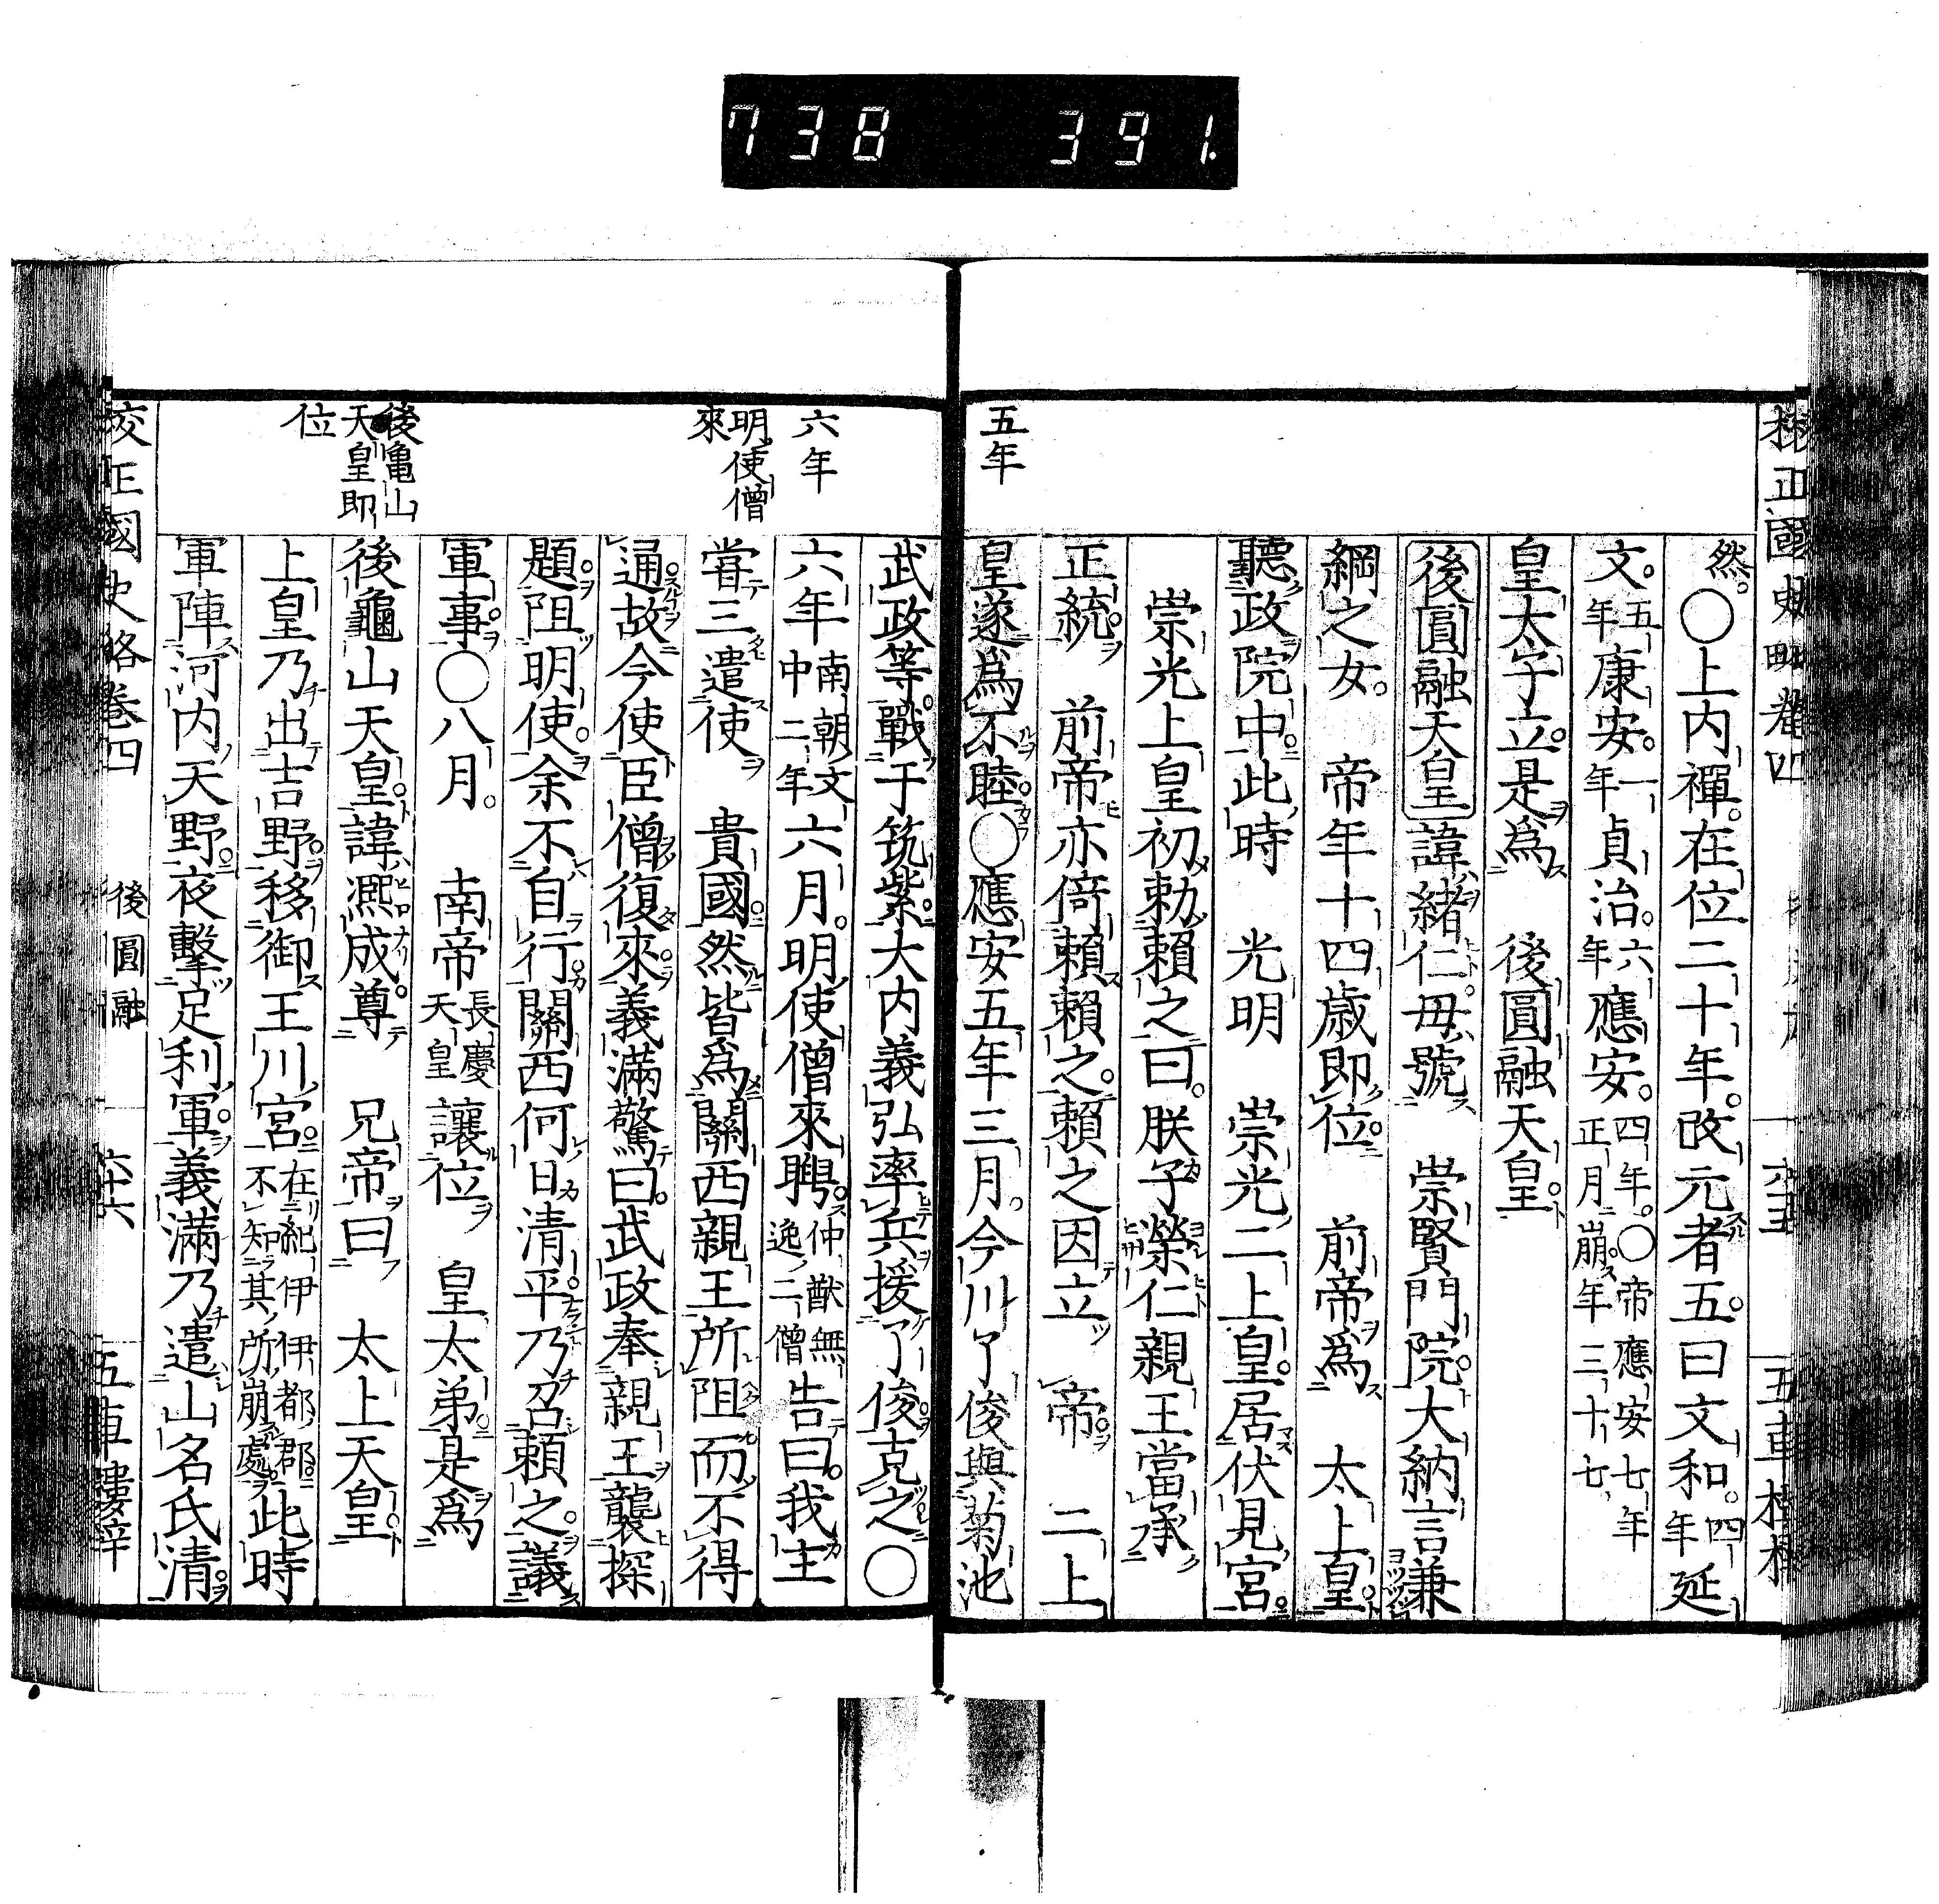 738 391.
五年
然。〇上内禪。在位二十年。改元者五。曰文和。四年延
文。五年康安。一年貞治。六年應安。四年。〇帝應安七年正月崩年三十七
皇太子立。是爲 後圓融天皇。
後圓融天皇諱緒仁。母號 崇賢門院。大納言兼
綱之女。 帝年十四歲即位 前帝爲 太上皇
聽政院中。此時 光明 崇光二上皇。居伏見宮。
崇光上皇初勅賴之曰。朕子榮仁親王當承
正統 前帝亦倚賴賴之。賴之因立 帝 二上
皇遂爲不睦〇應安五年三月。今川了俊與菊池
六年
明使僧來
後亀山天皇即位
武政等戰于筑紫大内義弘率兵援了俊克之〇
六年南朝文中二年六月。明使僧來聘。仲猷無逸二僧告曰。我主
嘗三遣使 貴國然皆爲關西親王所阻而不得
通故今使臣僧復來。義滿驚曰。武政奉親王襲探
題阻明使。余不自行關西何日清平乃召賴之議
軍事〇八月。 南帝長慶天皇讓位 皇太弟是爲
後龜山天皇諱凞成。尊 兄帝曰 太上天皇
上皇乃出吉野移御王川宮在紀伊伊都郡不知其所崩處此時
軍陣河内天野夜擊足利軍義滿乃遣山名氏清
校正國史略卷四 後圓融 六十六 五車樓梓